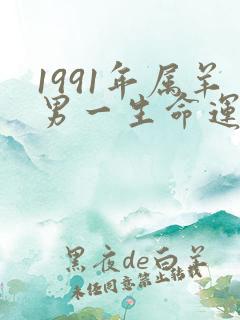 1991年属羊
男一生命运
黑夜de白羊
未经同意禁止转载